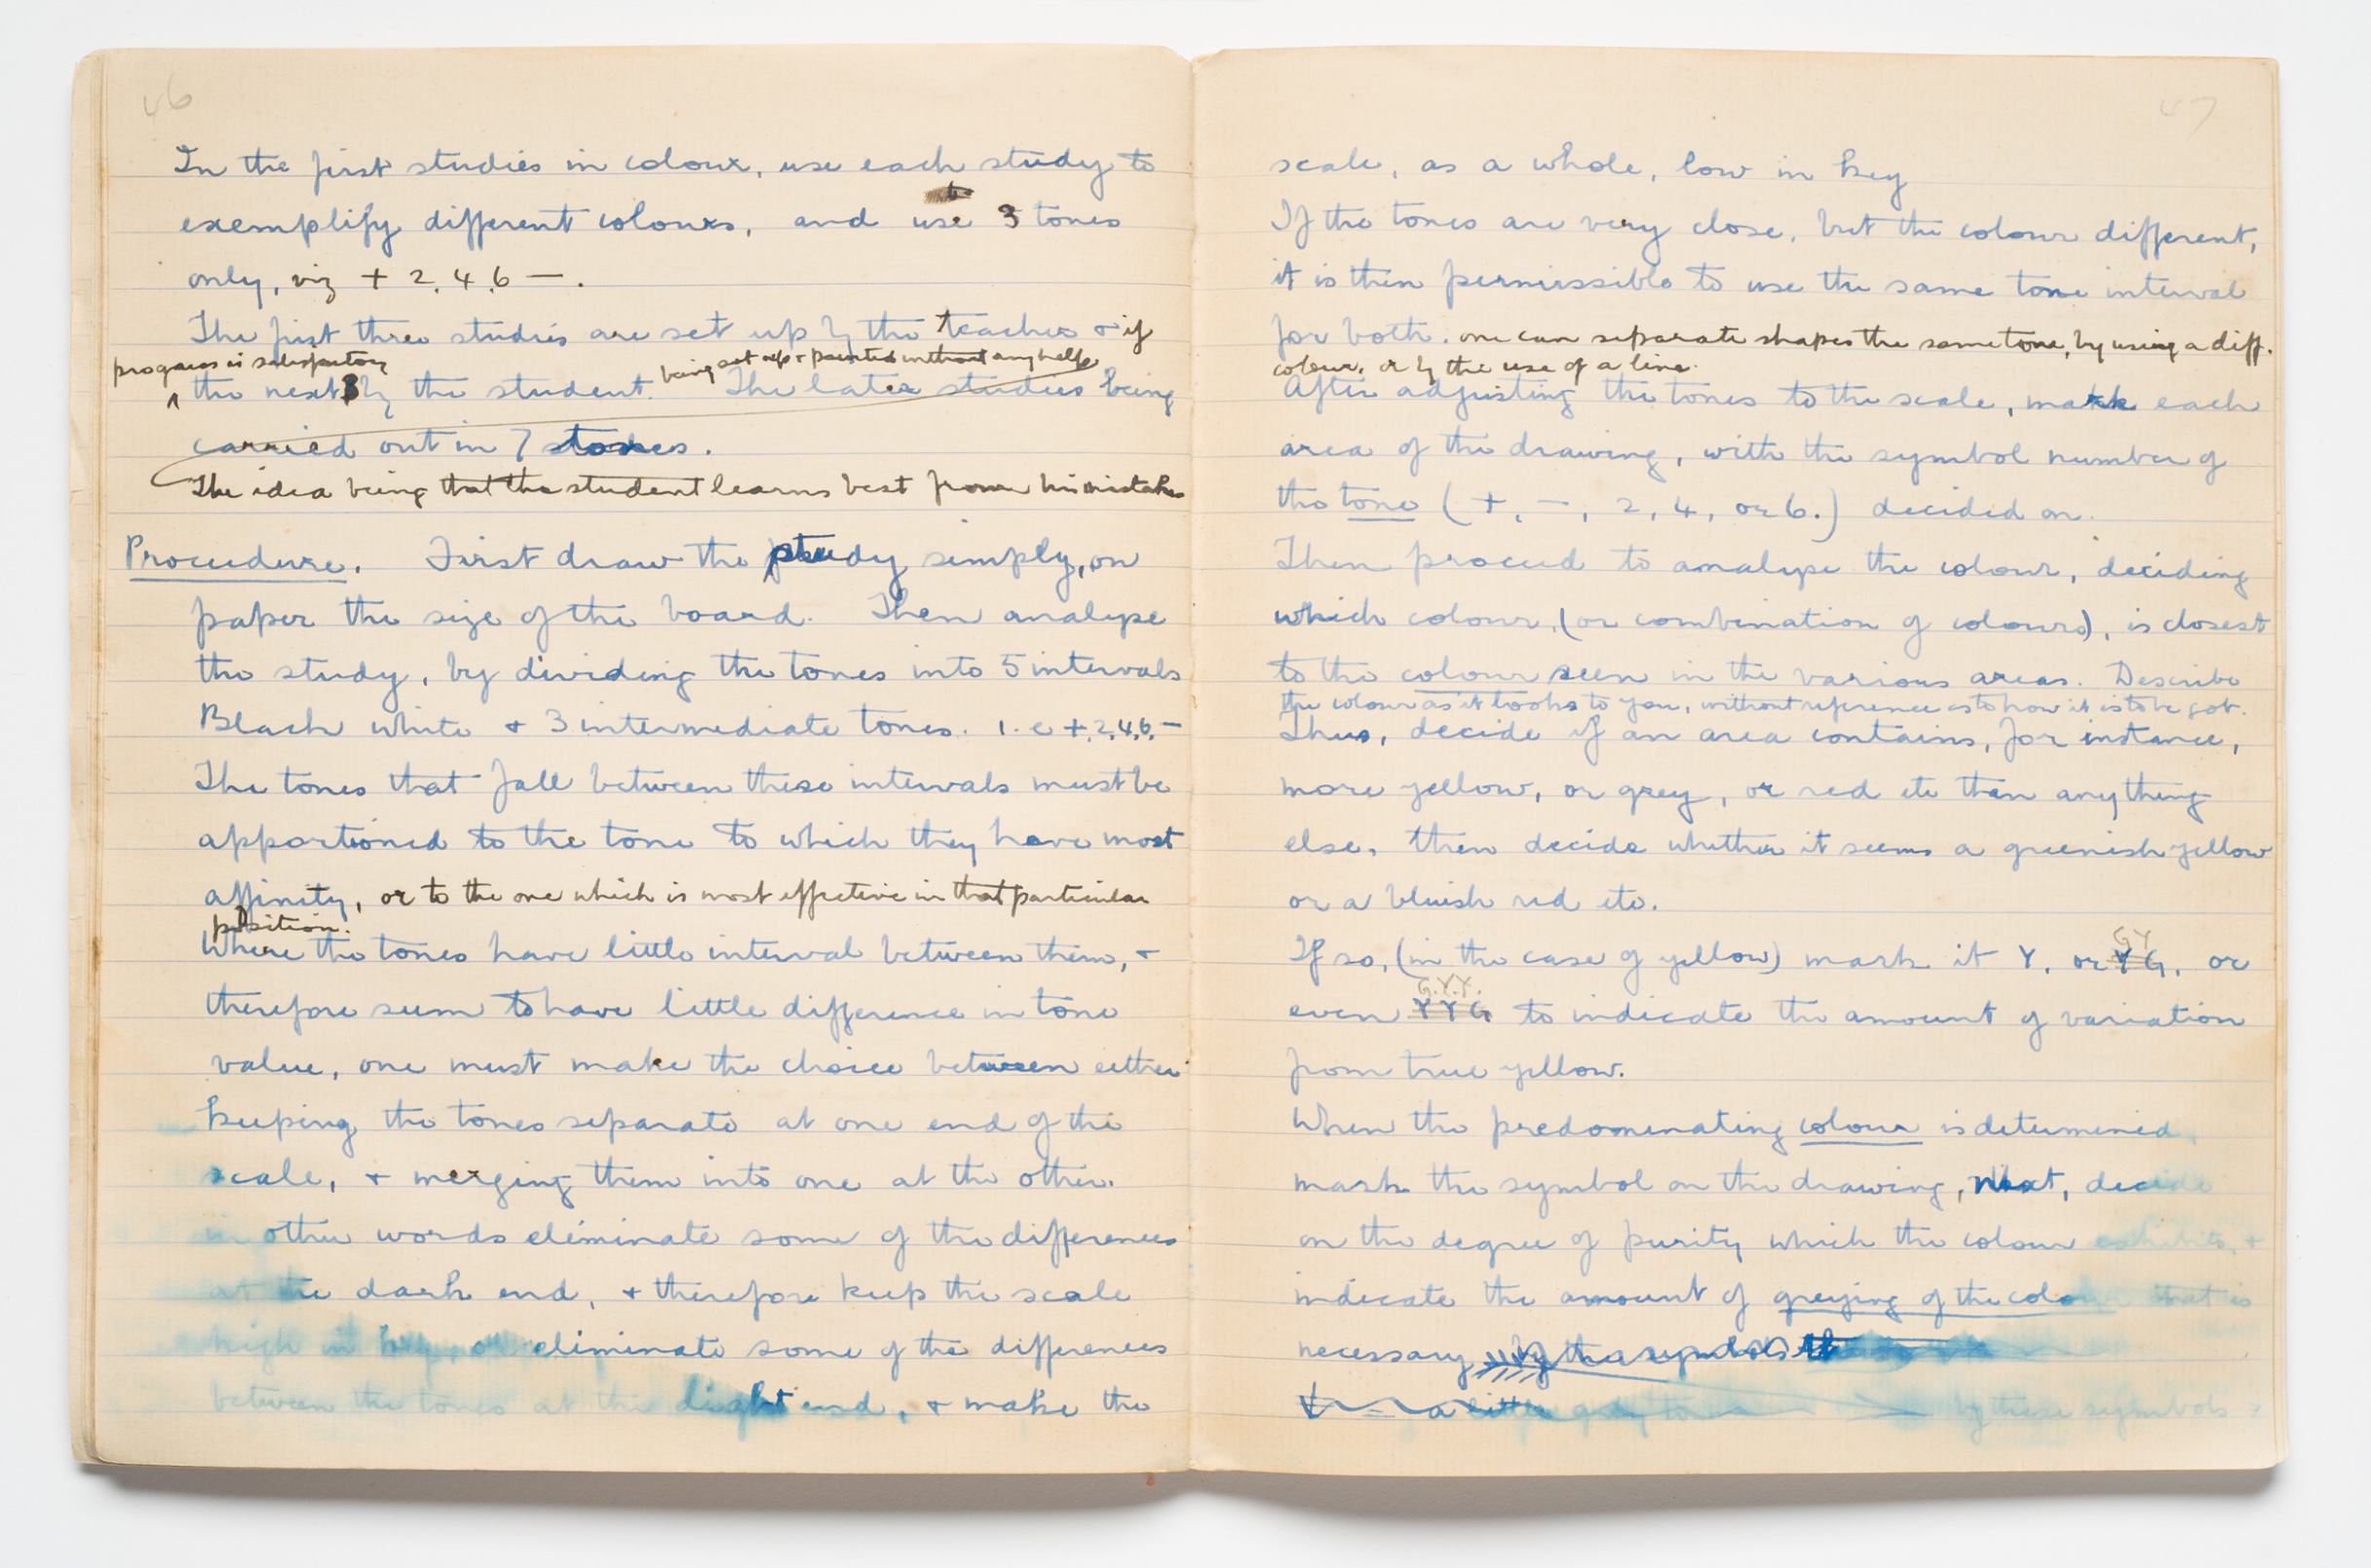 46
In the first studies in colour, use each study to
exemplify different colours, and use 3 tones
only, viz + 2, 4, 6 —.
The first three studies are set up by the teacher & if
progress is satisfactory
the next 3 by the student. The later studies being
being set up & painted without any help
carried out in 7 tones.
The idea being that the student learns best from his mistakes
Procedure. First draw the study simply, on
paper the size of the board. Then analyse
the study, by dividing the tones into 5 intervals
Black white & 3 intermediate tones. i.e +, 2, 4, 6, —
The tones that fall between these intervals must be
apportioned to the tone to which they have most
affinity, or to the one which is most effective in that particular
position.
Where the tones have little interval between them, &
therefore seem to have little difference in tone
value, one must make the choice between either
keeping the tones separate at one end of the
scale, & merging them into one at the other.
in other words eliminate some of the differences
at the dark end, & therefore keep the scale
high in key, or eliminate some of the differences
between the tones at the light end, & make the
47
scale, as a whole, low in key
If the tones are very close, but the colour different,
it is then permissible to use the same tone interval
for both. one can separate shapes the same tone, by using a diff.
colour, or by the use of a line.
After adjusting the tones to the scale, mark each
area of the drawing, with the symbol number of
the tone (+, —, 2, 4, or 6.) decided on.
Then proceed to analyse the colour, deciding
which colour, (or combination of colours), is closest
to the colour seen in the various areas. Describe
the colour as it looks to you, without reference as to how it is to be got.
Thus, decide if an area contains, for instance,
more yellow, or grey, or red etc than anything
else, then decide whether it seems a greenish yellow
or a bluish red etc.
If so, (in the case of yellow) mark it Y, or YG, or
GY
even YYG to indicate the amount of variation
G.Y.Y.
from true yellow.
When the predominating colour is determined,
mark the symbol on the drawing, Next, decide
on the degree of purity which the colour exhibits, &
indicate the amount of greying of the colour that is
necessary by the symbols
a little by these symbols